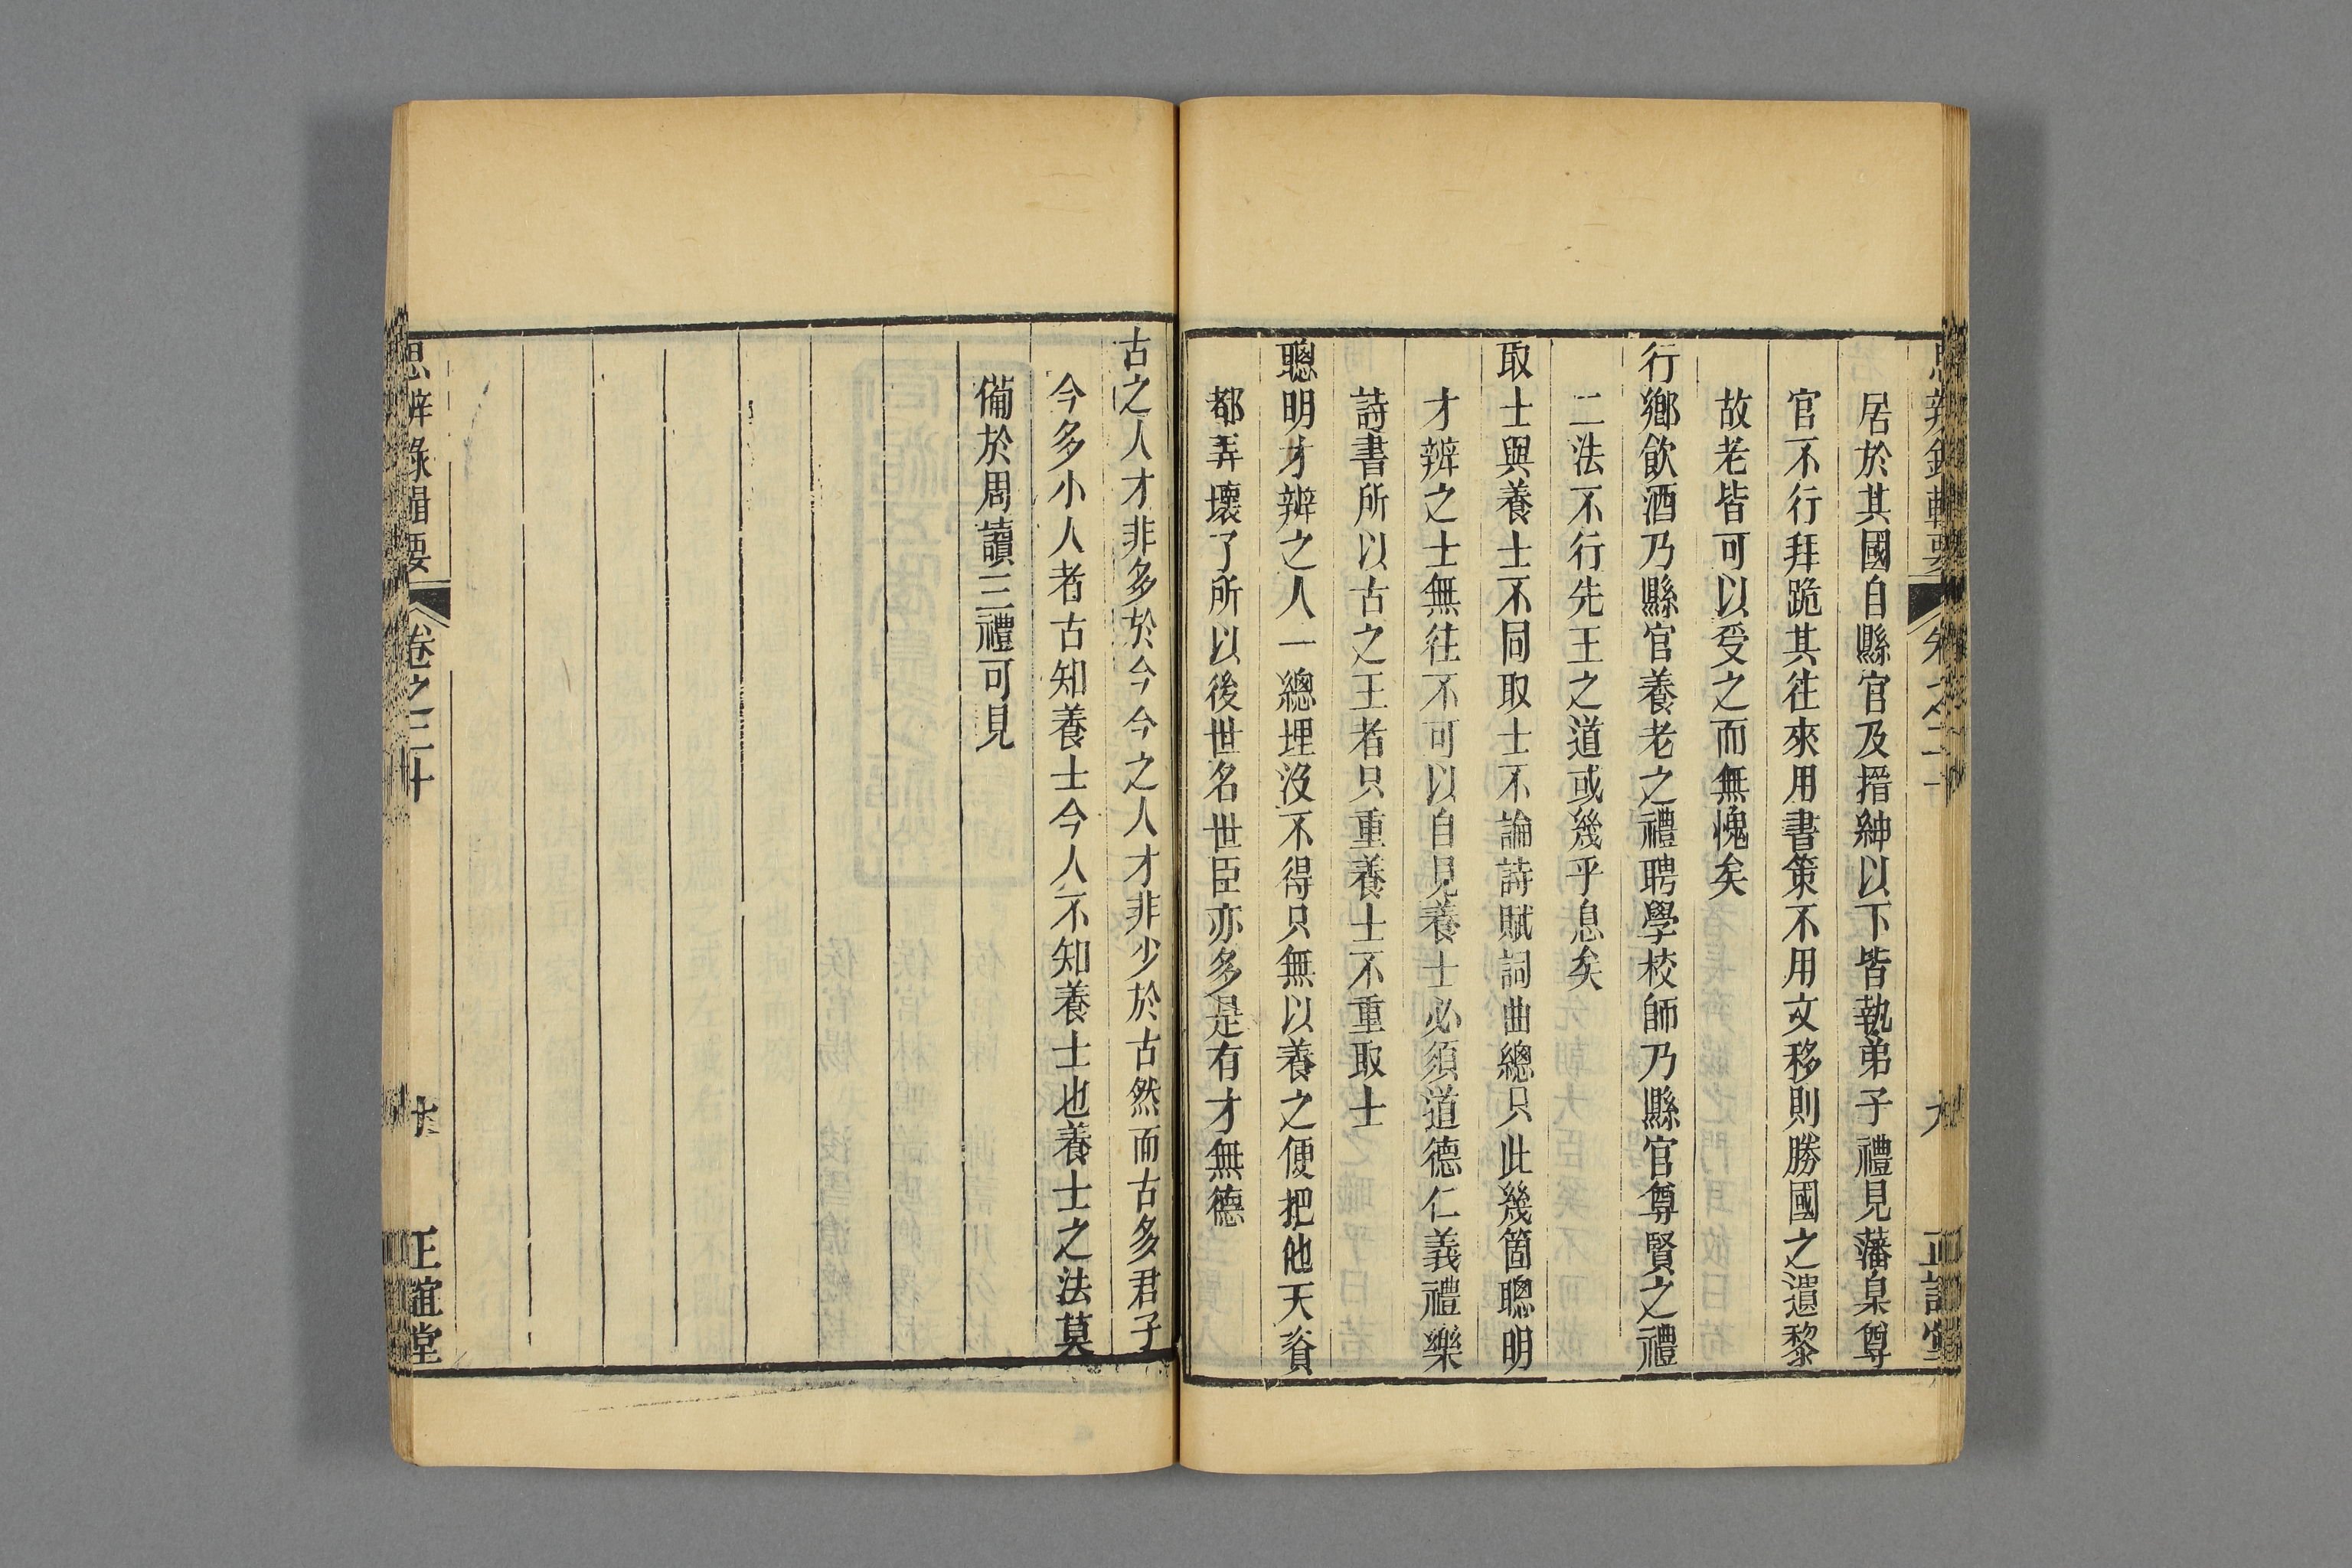 居於其國自縣官及搢紳以下皆執弟子禮見藩臬尊
官不行拜跪其往來用書策不用文移則勝國之遺黎
故老皆可以受之而無愧矣
行鄉飲酒乃縣官養老之禮聘學校師乃縣官尊賢之禮
二法不行先王之道或幾乎息矣
取士與養士不同取士不論詩賦詞曲總只此幾箇聰明
才辨之士無往不可以自見養士必須道德仁義禮樂
詩書所以古之王者只重養士不重取士
聰明才辨之人一總埋沒不得只無以養之便把他天資
都弄壞了所以後世名世臣亦多是有才無德
古之人才非多於今今之人才非少於古然而古多君子
今多小人者古知養士今人不知養士也養士之法莫
備於周讀三禮可見
思辨錄輯要 卷之二十 十 正誼堂